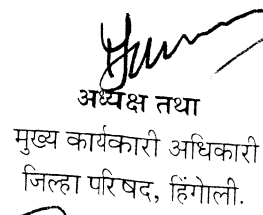 अध्यक्ष तथा
मुख्य कार्यकारी अधिकारी
जिल्हा परिषद, हिंगोली.